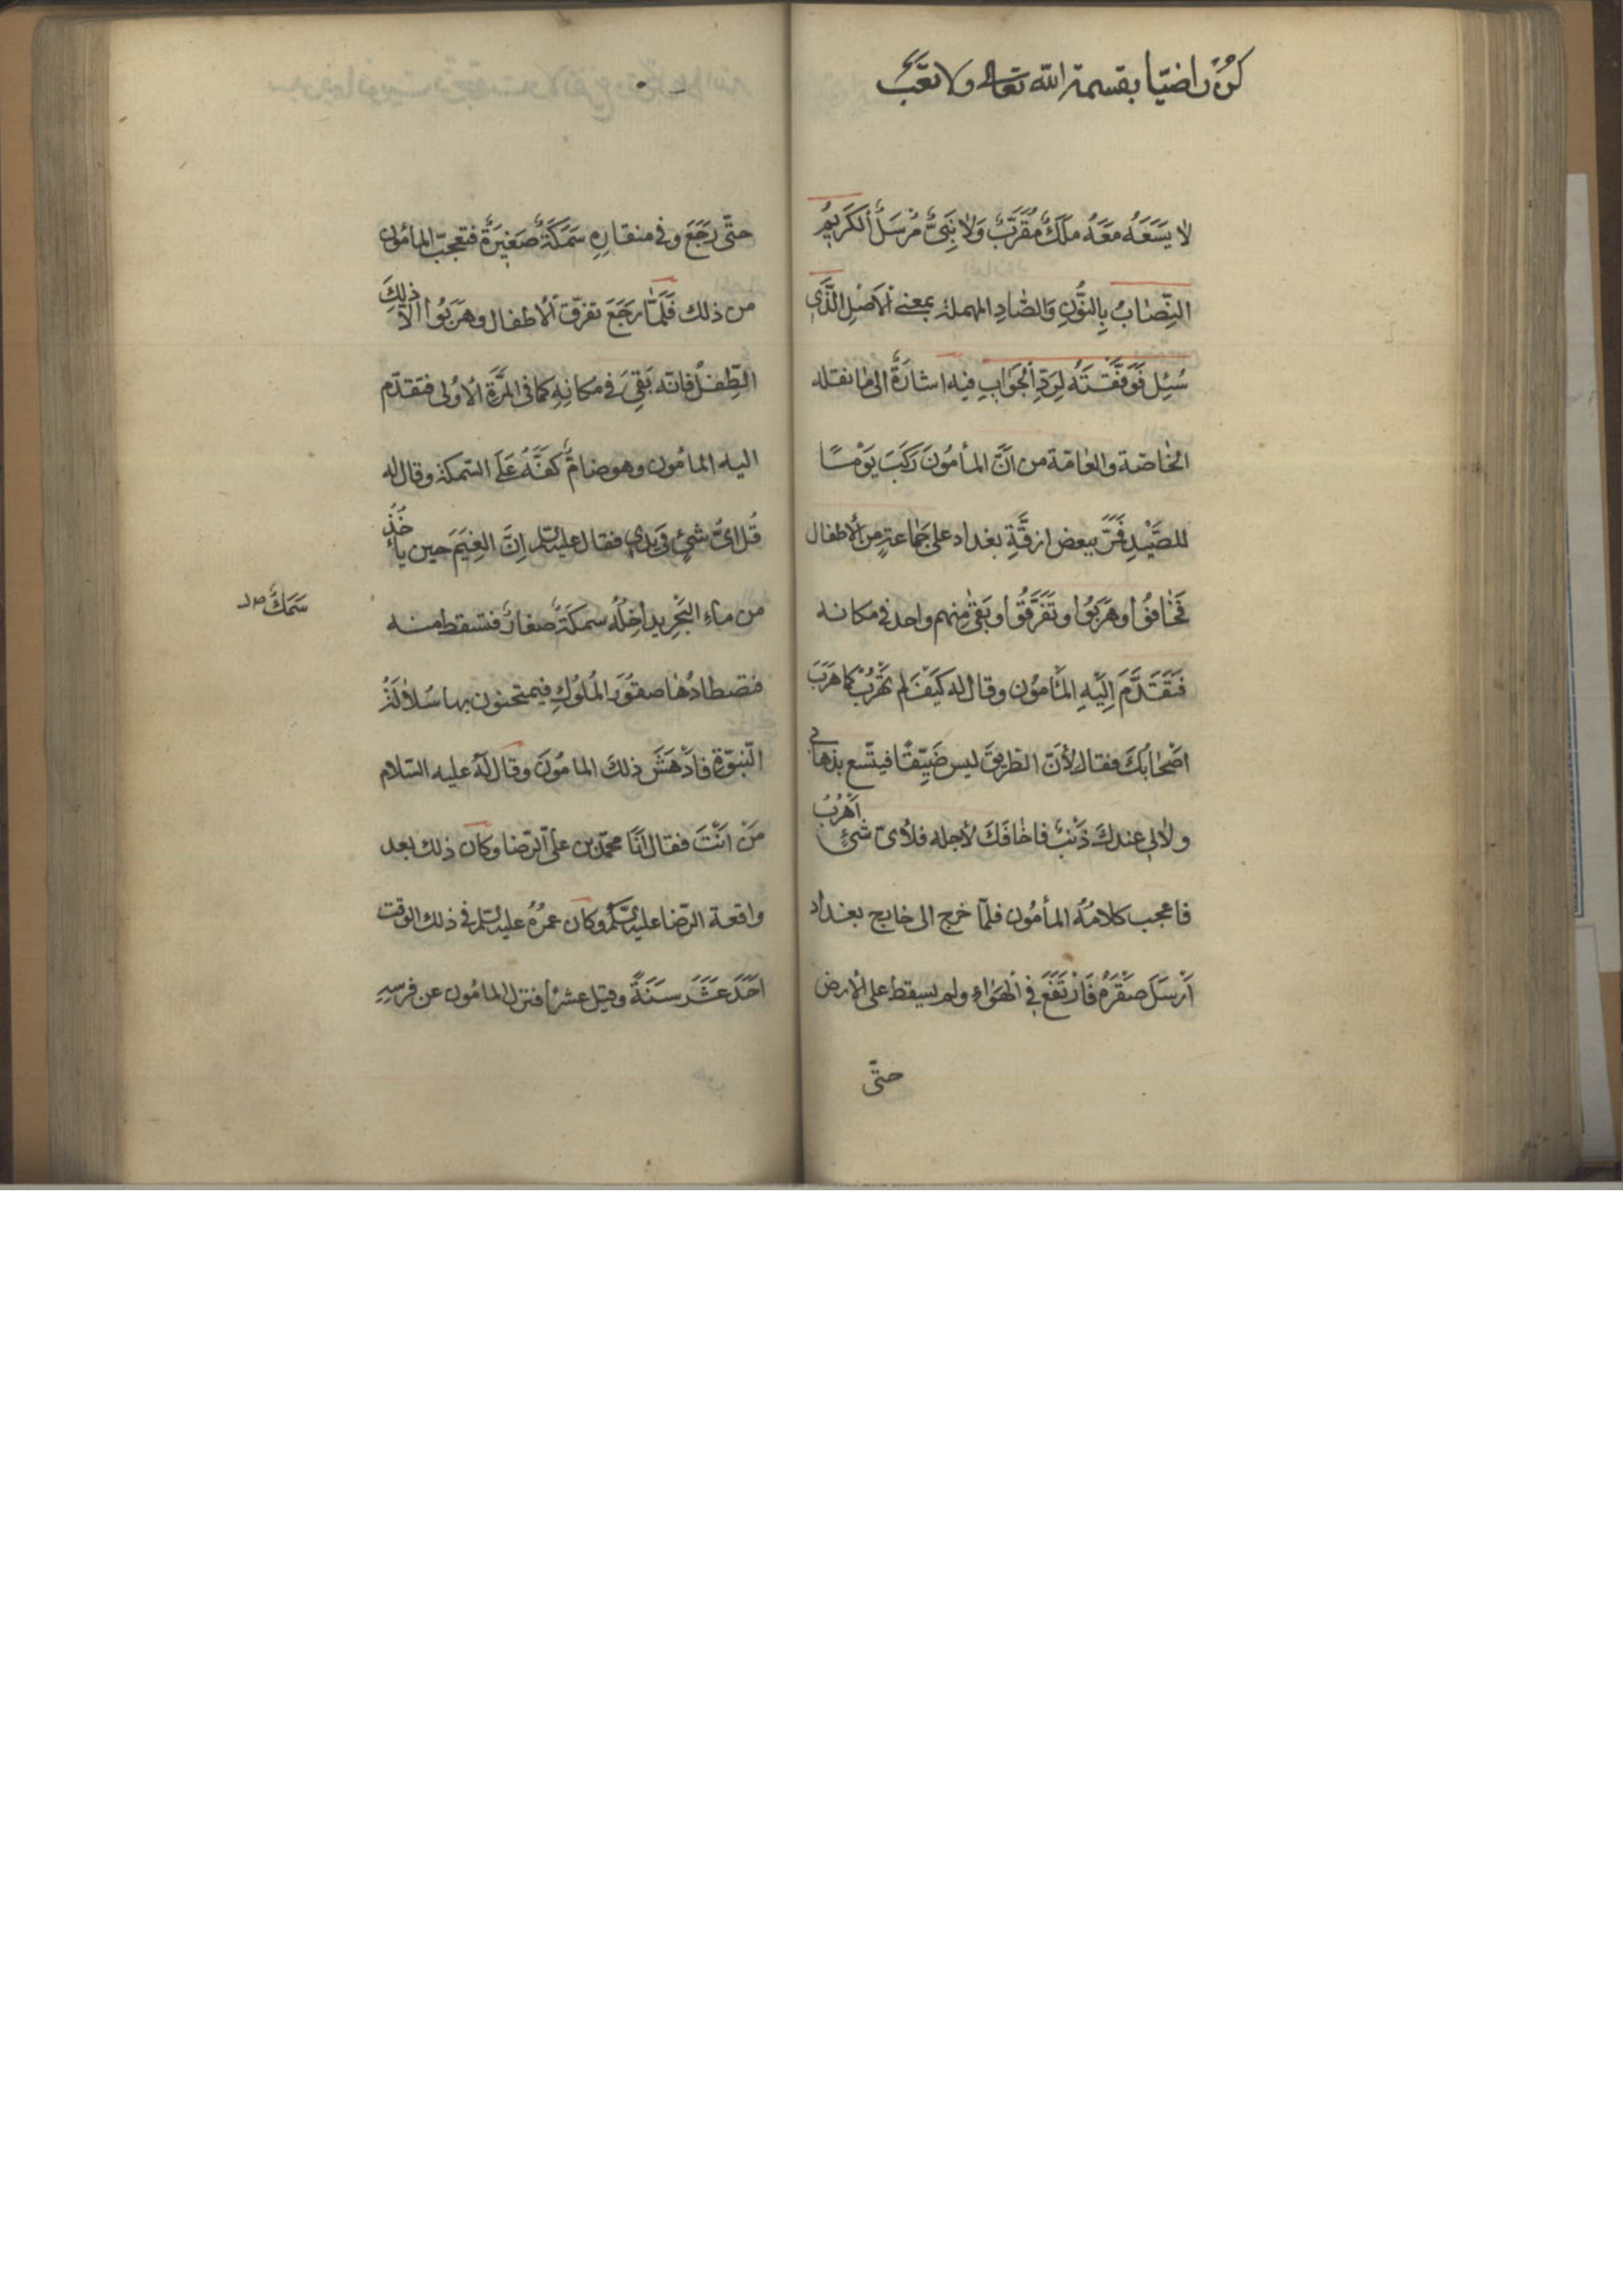 كن راضيا بقسمة الله تعالى ولا تعجب
لا يَسَعَهُ مَعَهُ مَلَكٌ مُقَرَّبٌ وَلا نَبِىٌّ مُرْسَلٌ اَلكَرِيمُ
النِّصٰابُ بِالنُّونِ وَالصّٰادِ المهملة بمعنى اَلاَصْلِ الَّذى
سُئِل فَوَفَّقْتَهُ لِرَدِّ اَلجَوٰابِ فيه اشارَةٌ الى مٰا نقله
الخٰاصّة والعٰامّة من اَنَّ المأمُونَ رَكَبَ يَوْمًا
للصَّيْدِ فَمَرَّ ببعض ازقَّةِ بغداد على جَمٰاعةٍ مِن اَلأطفال
فَخٰافُوا وهَرَبُوا وتَفَرَّقُوا وبَقىٰ مِنهم واحد فى مكانه
فَتَقَدَّمَ اِلَيْهِ المَأمُون وقال له كَيْفَ لم تَهْرُبْ كما هَرَبَ
اَصْحٰابُكَ فقال لأَنّ الطريقَ ليس ضَيِّقًا فيتّسع بذهابى
ولا لى عندكَ ذَنْبٌ فاخٰافَكَ لأجله فلأىّ شئٍ اَهْرُبُ
فاعجب كلامُهُ المأمُون فلمّا خرج الى خارج بغداد
اَرْسَلَ صَقْرَهُ فَارْتَفَعَ فى اَلهَوٰاءِ ولم يسقط على الارض
حتّى
حتّى رَجَعَ وفى منقارِهِ سَمَكَةٌ صَغيرَةٌ فتعجّب المأمُون
من ذلك فَلَمّٰا رَجَعَ تفرّق اَلأطفال وهَرَبُوا الّا ذلِكَ
الطِّفلُ فانّه بَقِىَ فى مكانِهِ كما فى المَرَّةِ الاُولى فتقدّم
اليه المأمون وهو ضامٌّ كَفَّهُ عَلَى السّمكة وقال له
قُل اىُّ شئٍ فى يَدى فقال عليه السّلم اِنَّ الغَيْمَ حين ياخُذُ
من مٰاءِ البَحْرِ يداخِلُهُ سمكَةٌ صغارٌ فتسقط منه
سَمَكٌ
فتصطادُهٰا صقُورُ المُلُوكِ فيمتحنون بها سُلالَةُ
النّبوّة فاَدْهَشَ ذلكَ المامُونَ وقال لَهُ عليه السّلام
مَنْ اَنْتَ فقال اَنَا محمّد بن علىّ الرّضا وكان ذلك بعد
واقعة الرّضا عليه السّلم وكان عمرُهُ عليه السّلم فى ذلك الوقت
اَحَدَ عَشَرَ سَنَةً وقيل عشرًا فنزل المامُون عن فرسِهِ